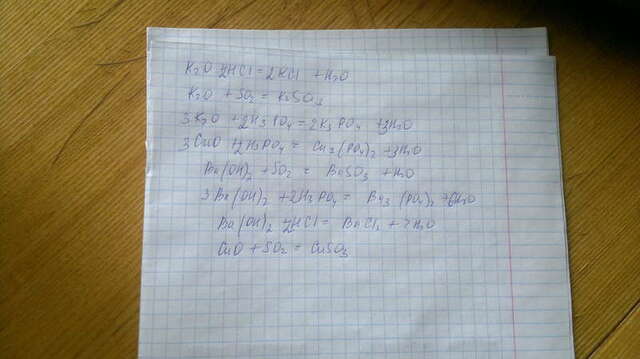 K2O + 2HCl = 2KCl + H2O
K2O + SO2 = K2SO3
3K2O + 2H3PO4 = 2K3PO4 + 3H2O
3CuO + 2H3PO4 = Cu3(PO4)2 + 3H2O
Ba(OH)2 + SO2 = BaSO3 + H2O
3Ba(OH)2 + 2H3PO4 = Ba3(PO4)2 + 6H2O
Ba(OH)2 + 2HCl = BaCl2 + 2H2O
CuO + SO2 = CuSO3